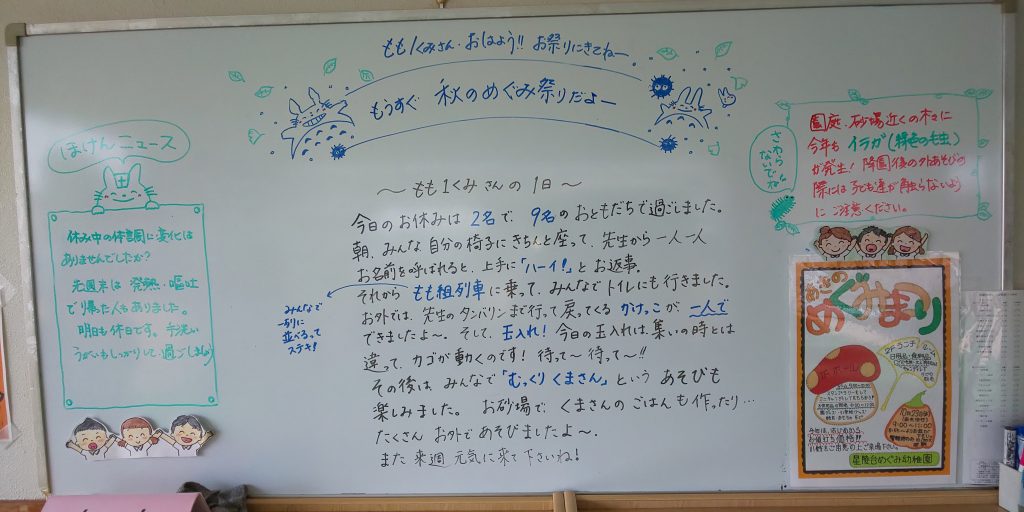 もも1くみさん・おはよう!! お祭りにきてねー
もうすぐ 秋のめぐみ祭りだよー
ほけんニュース
休み中の体調に変化は
ありませんでしたか?
先週末は 発熱・嘔吐
で帰った人もありました。
明日も休日です。手洗い
うがいもしっかりして過ごしましょう
〜 もも1くみさんの1日 〜
今日のお休みは 2名で、9名のおともだちで過ごしました。
朝、みんな自分の椅子にきちんと座って、先生から一人一人
お名前を呼ばれると、上手に「ハーイ!」とお返事。
それから もも組列車に乗って、みんなでトイレにも行きました。
お外では、先生のタンバリンまで行って戻ってくる かけっこが、一人で
できましたよ〜。そして、玉入れ! 今日の玉入れは、集いの時とは
違って、カゴが動くのです! 待って〜待って〜!!
その後は、みんなで「むっくりくまさん」という あそびも
楽しみました。 お砂場で、くまさんの ごはんも作ったり…
たくさん お外であそびましたよ〜。
また 来週 元気に来て下さいね!
みんなで
一列に
並べるって
ステキ!
さわら
ないでね
園庭、砂場近くの木々に
今年も イラガ(緑色の毛虫)
が発生! 降園後の外あそびの
際には子ども達が触らないよう
に ご注意ください。
あきの
めぐみまつり
10月23日
星陵台めぐみ幼稚園